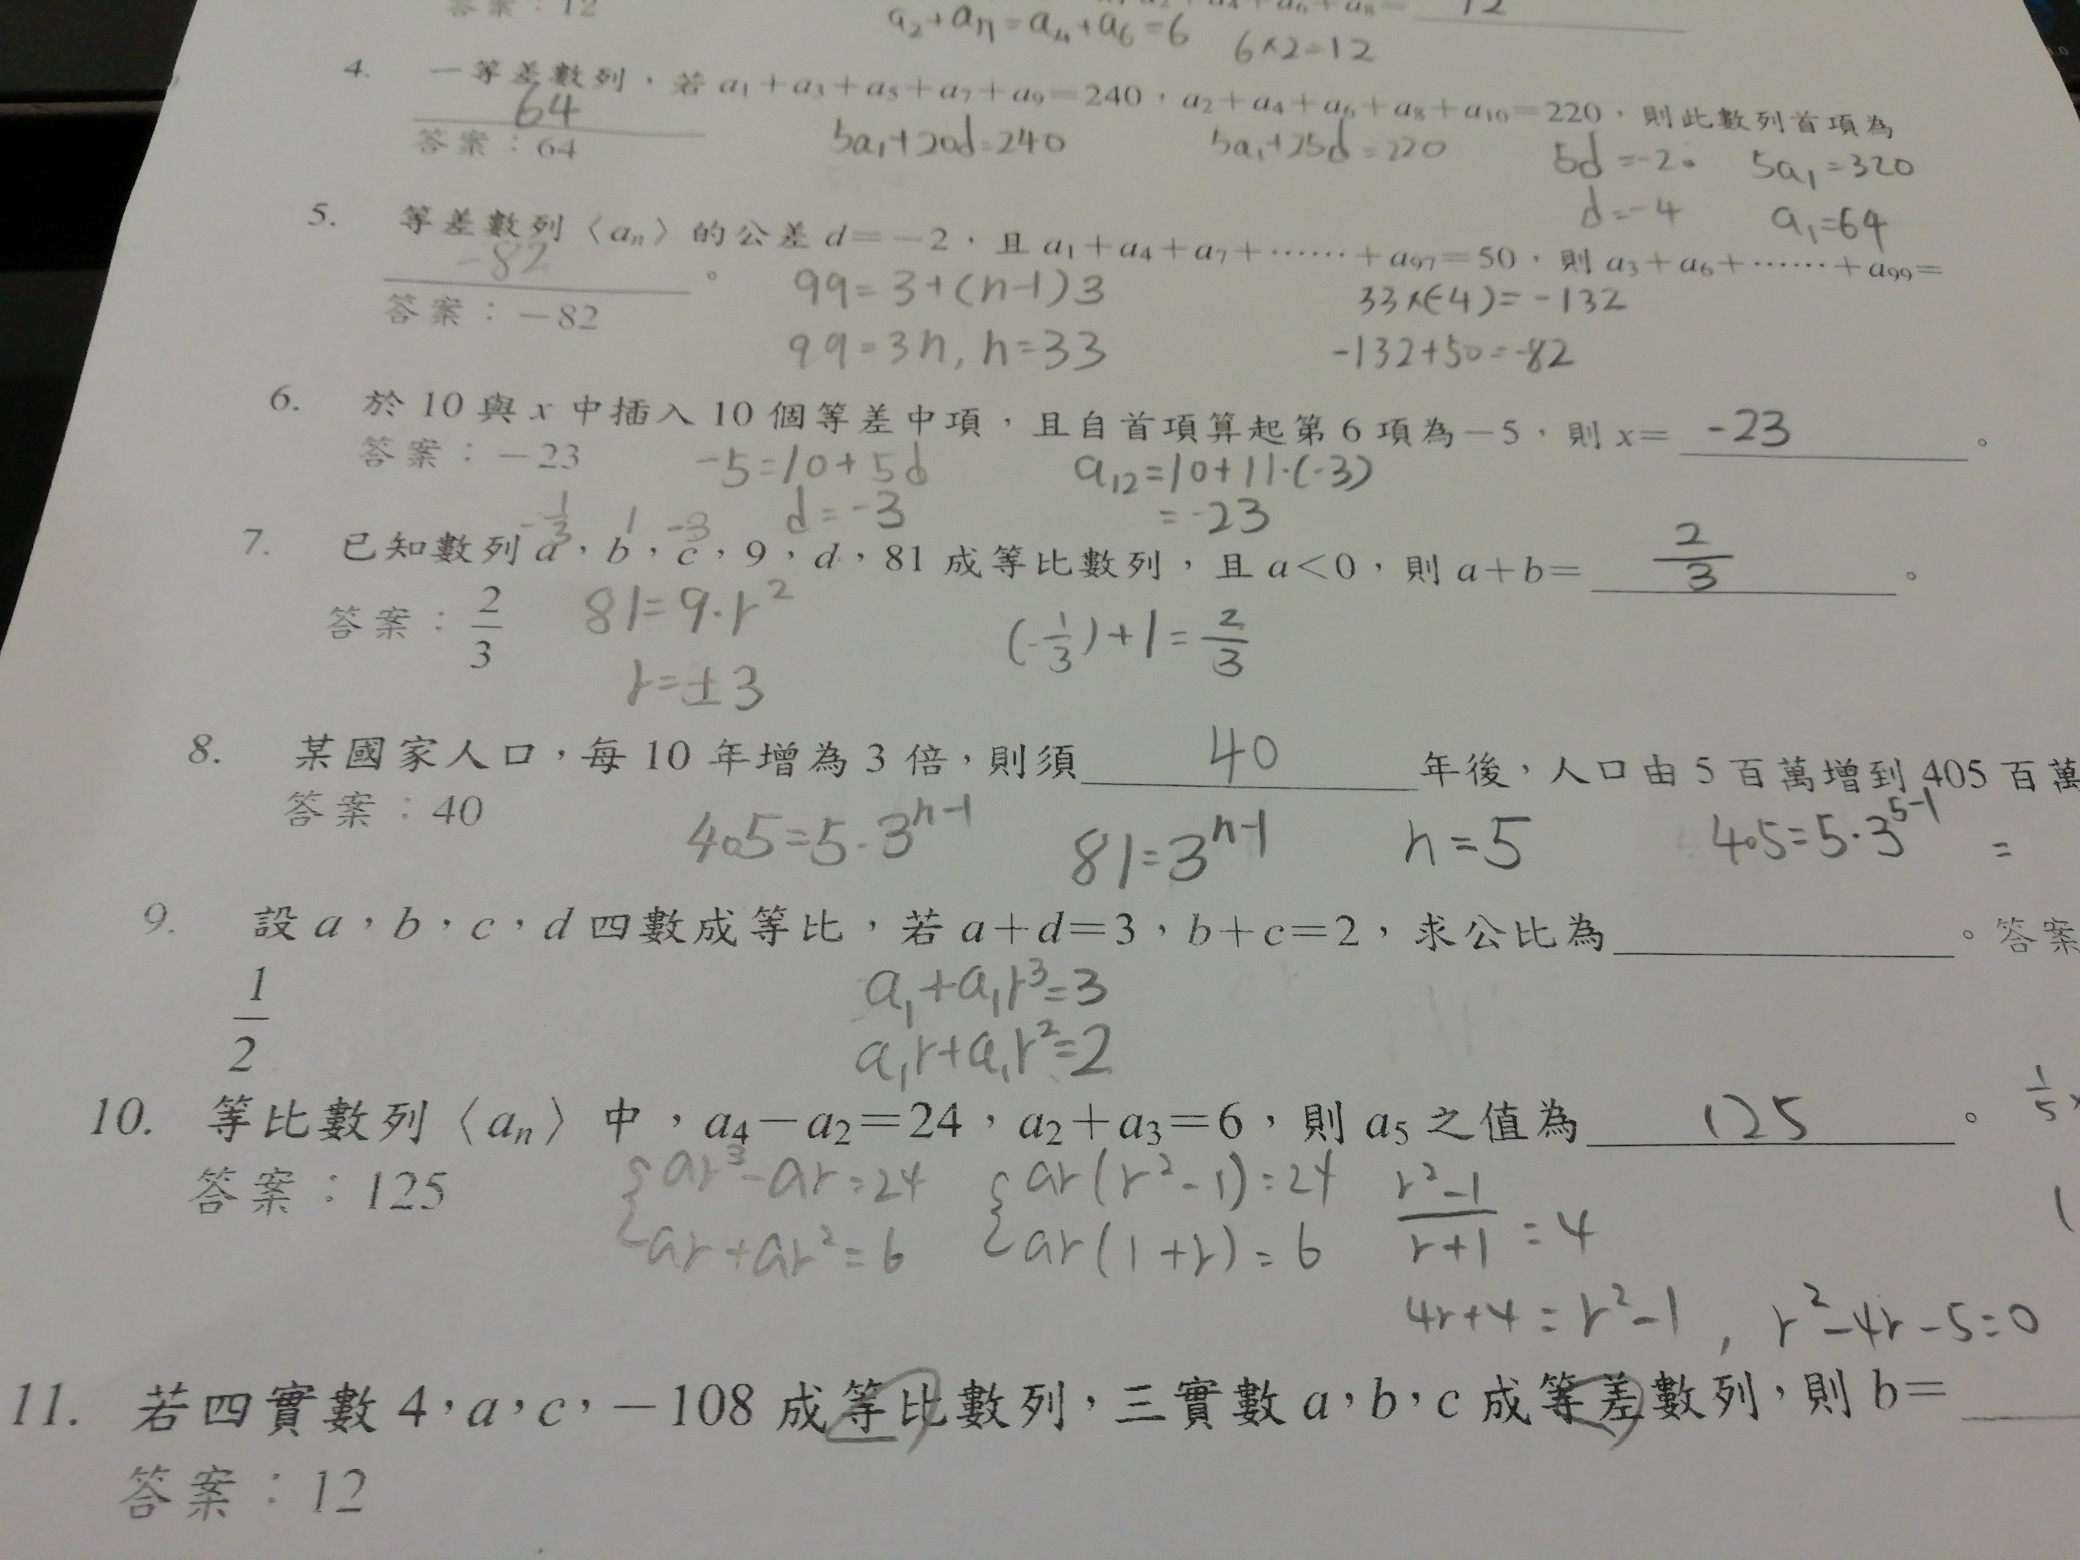 答案：12
a₂+aₙ=a₄+a₆=6 6×2=12
4. 一等差數列，若 a₁+a₃+a₅+a₇+a₉=240，a₂+a₄+a₆+a₈+a₁₀=220，則此數列首項為
64
答案：64
5a₁+20d=240 5a₁+25d=220 5d=-20 5a₁=320
d=-4 a₁=64
5. 等差數列〈aₙ〉的公差 d=-2，且 a₁+a₄+a₇+……+a₉₇=50，則 a₃+a₆+……+a₉₉=
-82 。
答案：-82
99=3+(n-1)3 33×(-4)=-132
99=3n, n=33 -132+50=-82
6. 於 10 與 x 中插入 10 個等差中項，且自首項算起第 6 項為-5，則 x= -23 。
答案：-23 -5=10+5d a₁₂=10+11·(-3)
d=-3 =-23
-1/3 1 -3
7. 已知數列 a，b，c，9，d，81 成等比數列，且 a<0，則 a+b= 2/3 。
答案：2/3 81=9·r² (-1/3)+1=2/3
r=±3
8. 某國家人口，每 10 年增為 3 倍，則須 40 年後，人口由 5 百萬增到 405 百萬
答案：40 405=5·3ⁿ⁻¹ 81=3ⁿ⁻¹ n=5 405=5·3⁵⁻¹ =
9. 設 a，b，c，d 四數成等比，若 a+d=3，b+c=2，求公比為 。答案
1/2
a₁+a₁r³=3
a₁r+a₁r²=2
10. 等比數列〈aₙ〉中，a₄-a₂=24，a₂+a₃=6，則 a₅ 之值為 125 。 1/5×
答案：125
{ar³-ar=24 {ar(r²-1)=24 (r²-1)/(r+1)=4
ar+ar²=6 ar(1+r)=6
4r+4=r²-1, r²-4r-5=0
11. 若四實數 4，a，c，-108 成等比數列，三實數 a，b，c 成等差數列，則 b=
答案：12